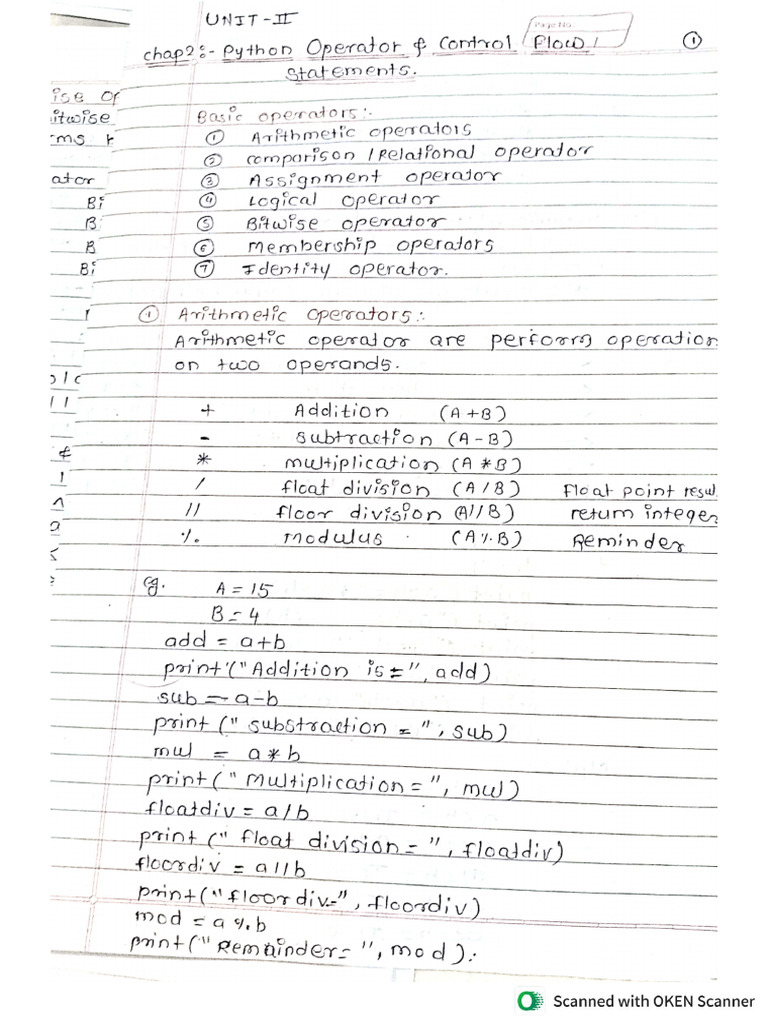 UNIT-II
Page No.
chap2:- Python Operator & Control Flow
statements.
1
ise of
itwise
ms
ator
Bi
B
B
Bi
Basic operators:-
1 Arithmetic operators
2 comparison / Relational operator
3 Assignment operator
4 Logical operator
5 Bitwise operator
6 Membership operators
7 Identity operator.
1 Arithmetic operators:-
Arithmetic operator are perform operation
on two operands.
+ Addition (A+B)
- subtraction (A-B)
* multiplication (A*B)
/ float division (A/B) Float point resul
// floor division (A//B) return integer
% Modulus (A%B) Reminder
eg. A = 15
B = 4
add = a+b
print("Addition is =", add)
sub = a-b
print (" substraction = ", sub)
mul = a*b
print(" Multiplication = ", mul)
floatdiv = a/b
print (" float division = ", floatdiv)
floordiv = a//b
print("floordiv=", floordiv)
mod = a%b
print("Remainder= ", mod).
Scanned with OKEN Scanner